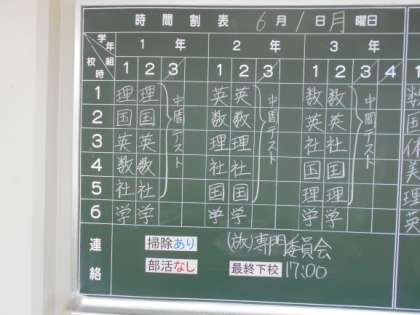 時間割表 6月1日月曜日
学年 1年 2年 3年
校時 組 1 2 3 1 2 3 1 2 3 4
1 理 理 中間テスト 英 英 中間テスト 数 数 中間テスト
2 国 国 数 数 英 英
3 英 英 理 理 社 社
4 数 数 社 社 国 国
5 社 社 国 国 理 理
6 学 学 学 学 学 学
連絡 掃除あり (放)専門委員会
部活なし 最終下校 17:00